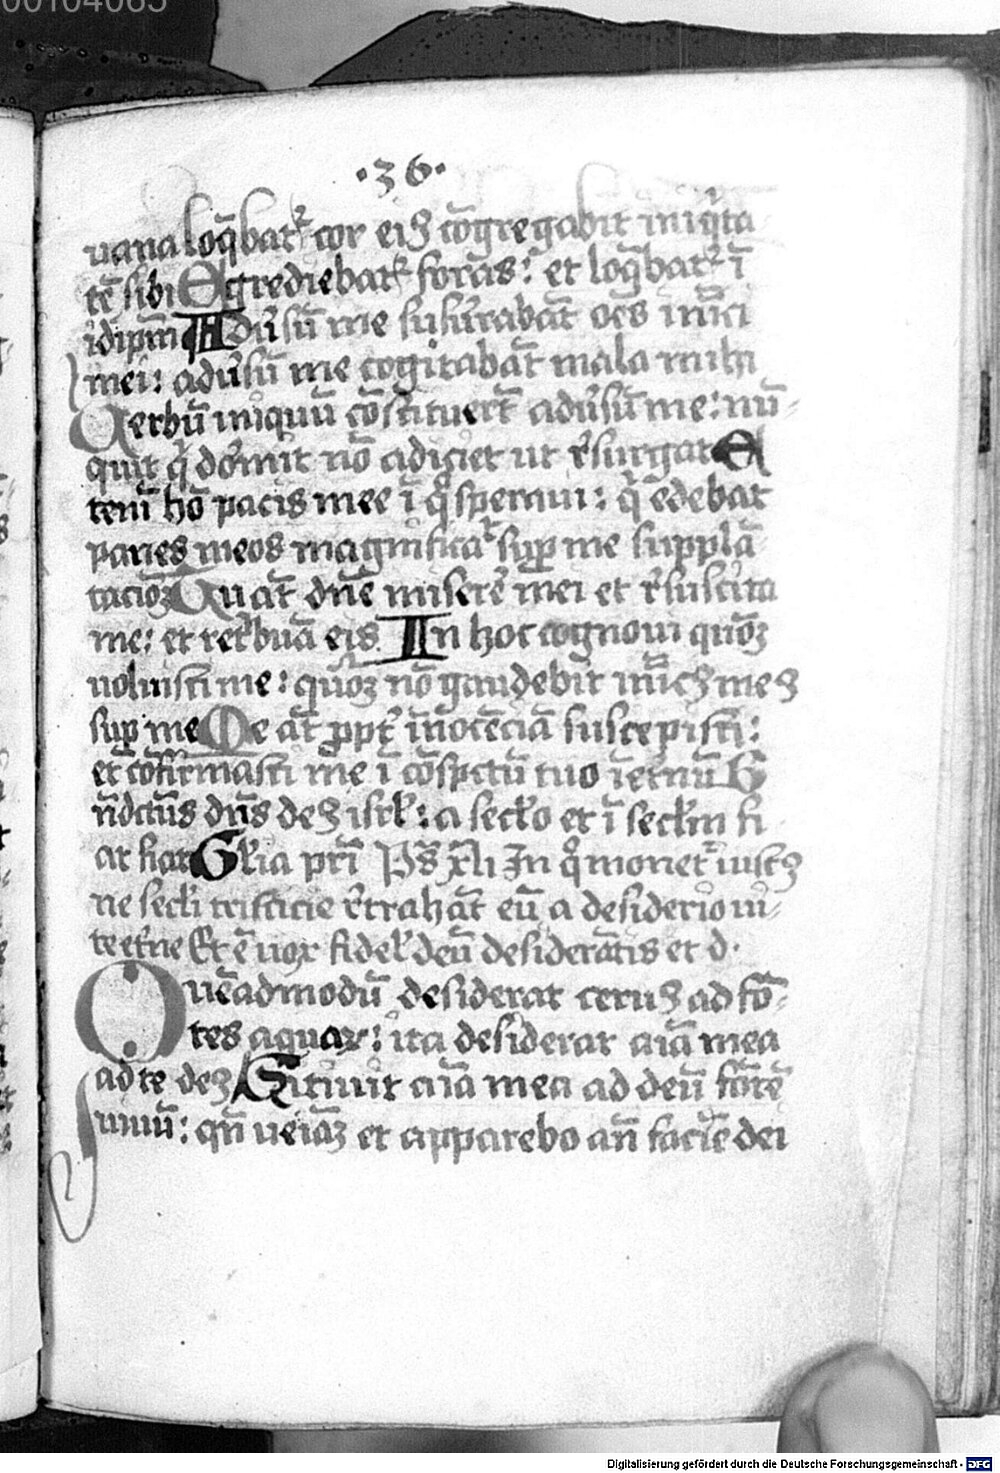 00104065
·36·
uana loq̄bat᷑ cor eiꝰ cōgregabit iniq̇ta
tē sibi Egrediebat᷑ foras: et loq̄bat᷑ ī
idip̄m Adūsū me susurrabāt oēs inīci
mei: adūsū me cogitabāt mala mihi
Verbū iniquū cōstituerūt adūsū me: nū-
quit q̇ dormit nō adiciet ut r̄surgat E
tenī hō pacis mee ī q̊ speraui: q̇ edebat
panes meos magnificaᵗ suꝑ me supplā
tacioꝫ Tu āt dn̄e miserē mei et r̄suscita
me: et ret̄buā eis In hoc cognoui qm̄
uoluisti me: qm̄ nō gaudebit inīcꝰ meꝰ
suꝑ me Me āt ꝓpt̄ īnocēciā suscepisti:
et cōfirmasti me ī cōspctū tuo ī et̄nū B
n̄dctūs dn̄s deꝰ isrl̄: a secl̄o et ī secl̄m fi
at fiat Gl̄ia pr̄i Ps̄ xli In q̊ monet᷑ iustꝰ
ne secl̄i tristicie r̄trahāt eū a desiderio ui-
te et̄ne Et ē uox fidel̄ deū desiderātis et d·
Quēadmodū desiderat ceruꝰ ad fō-
tes aquaꝝ: ita desiderat aīa mea
ad te deꝰ Sitiuit aīa mea ad deū fōtē
uiuū: qn̄ ueiā et apparebo an̄ faciē dei
Digitalisierung gefördert durch die Deutsche Forschungsgemeinschaft - DFG